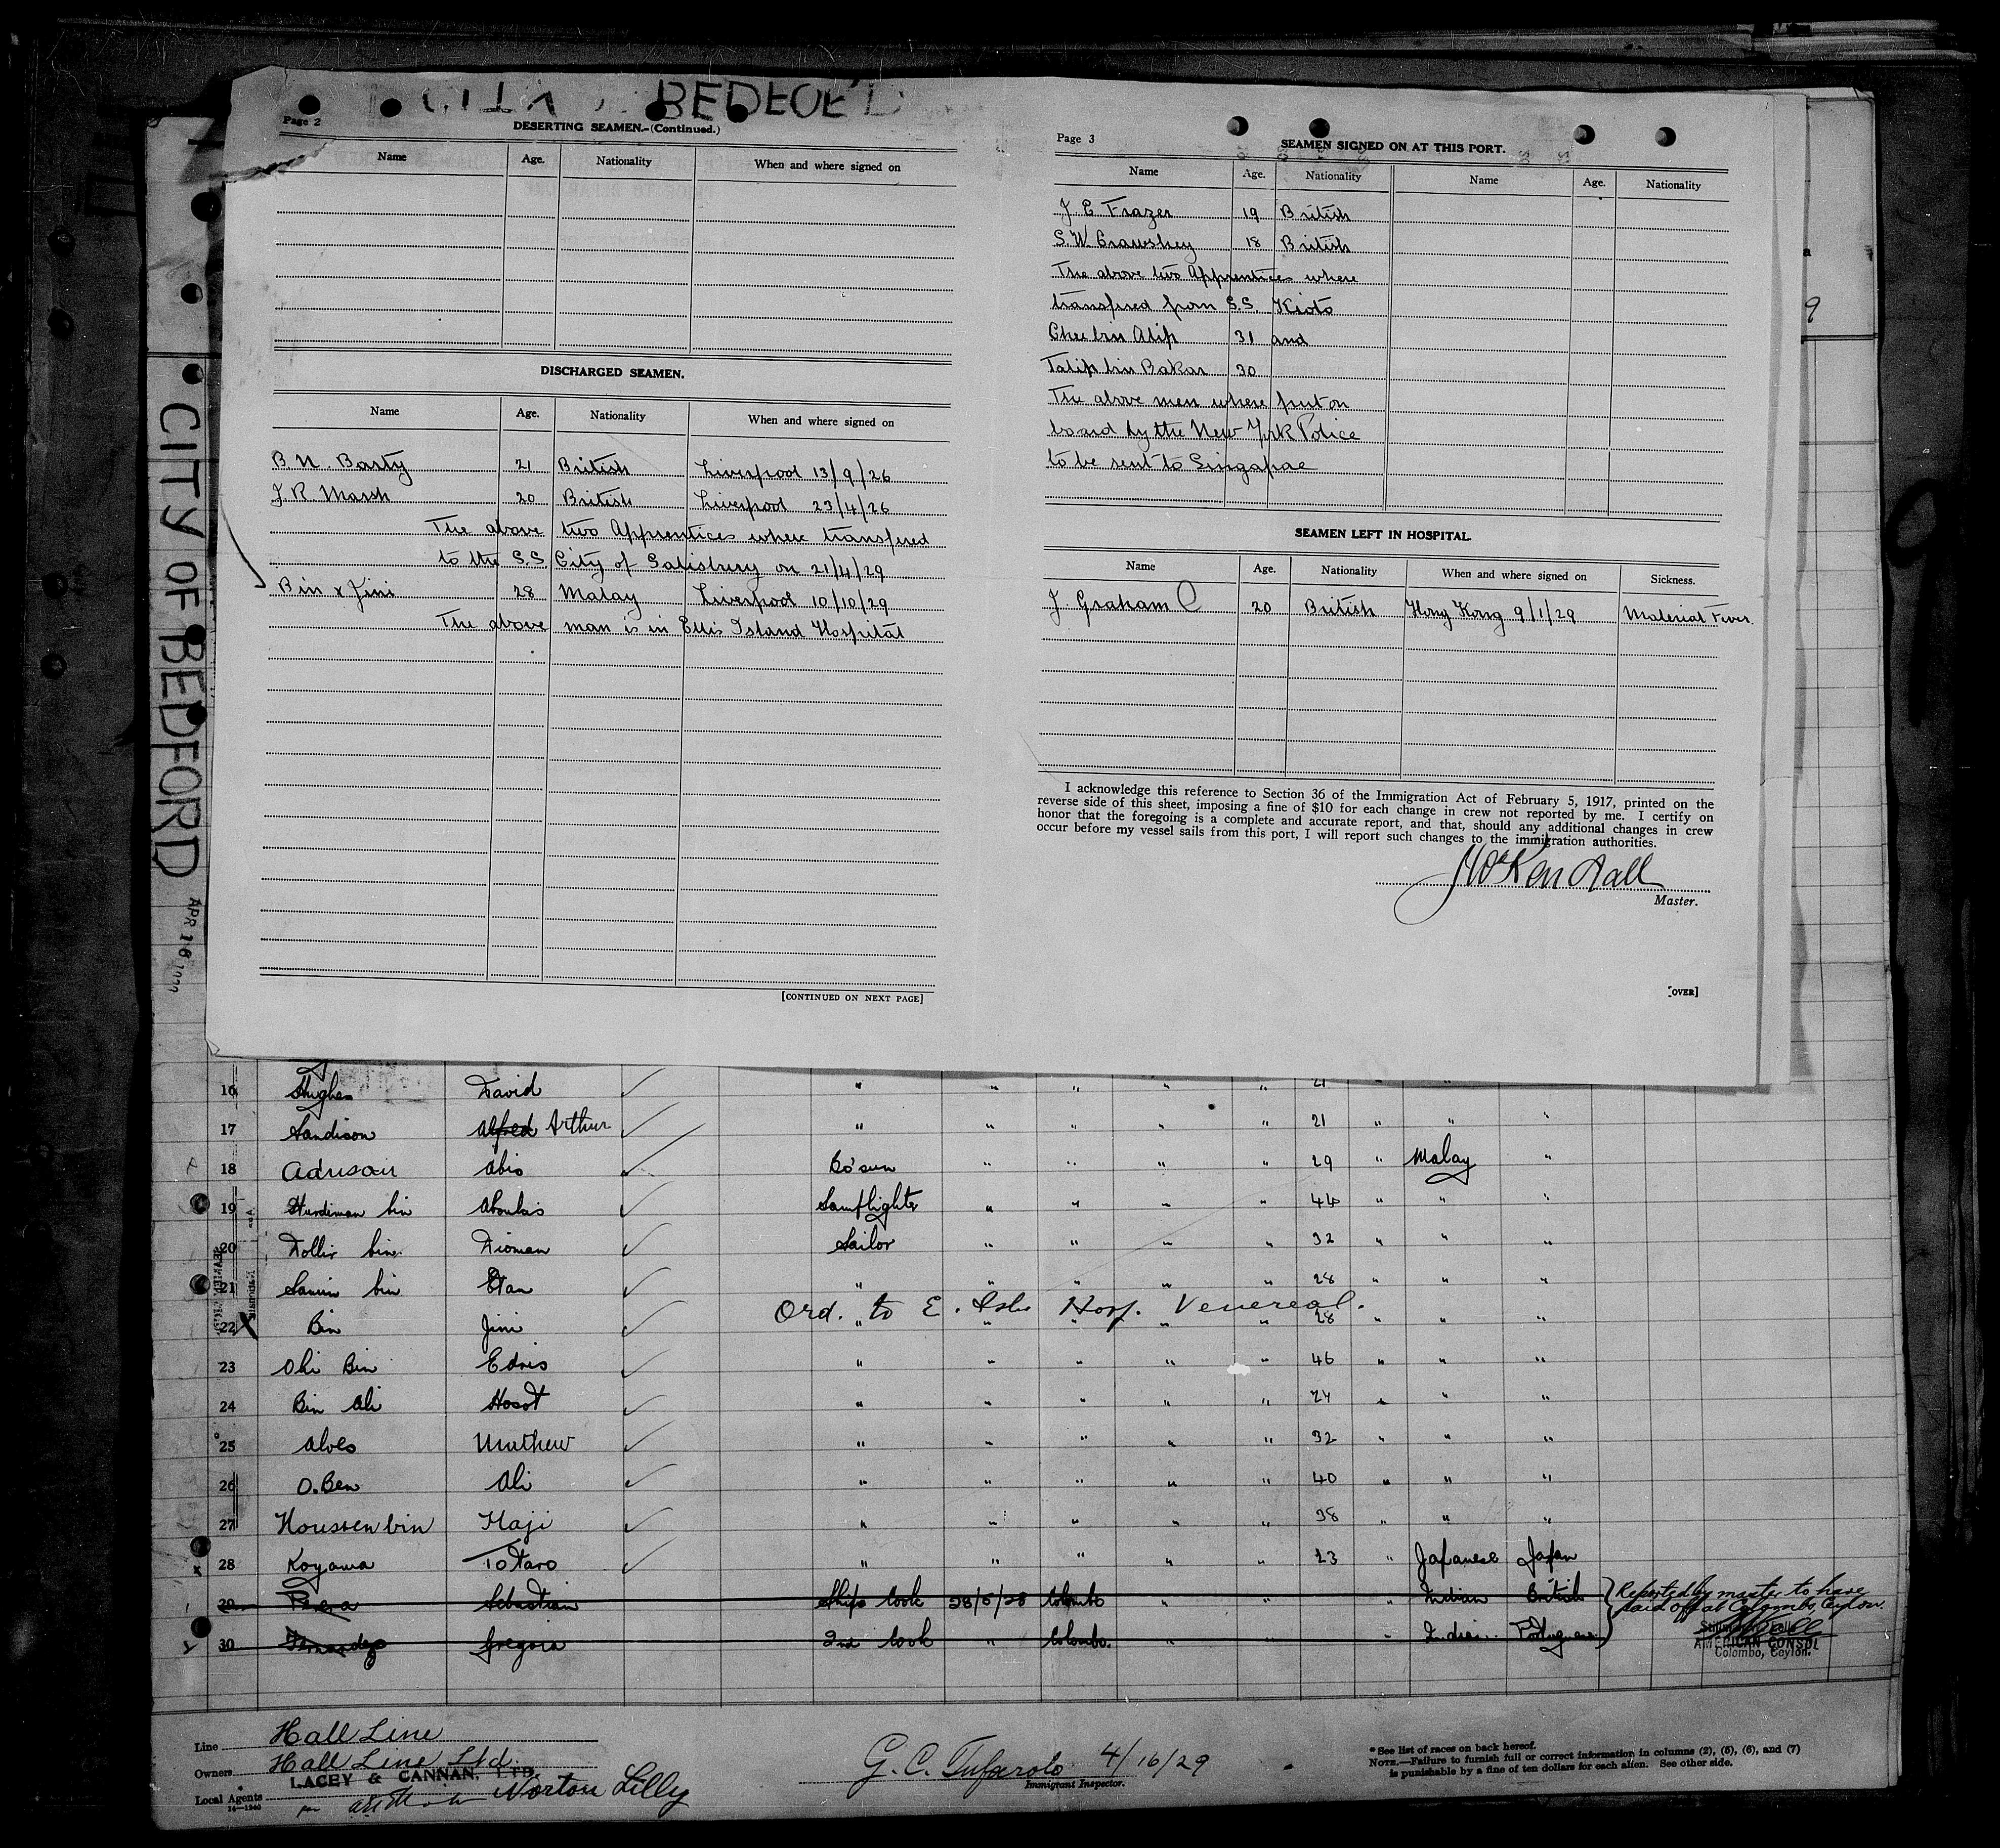 CITY OF BEDFORD
APR 18
CITY BEDFO'D
Page 2
DESERTING SEAMEN.-(Continued.)
Name Age. Nationality When and where signed on
DISCHARGED SEAMEN.
Name Age. Nationality When and where signed on
B. N. Basty 21 British Liverpool 13/9/26
J. R Marsh 20 British Liverpool 23/4/26
The above two Apprentices where transfered
to the S.S. City of Salisbury on 21/4/29
Bin x Jini 28 Malay Liverpool 10/10/29
The above man is in Ellis Island Hospital
[CONTINUED ON NEXT PAGE]
Page 3
SEAMEN SIGNED ON AT THIS PORT.
Name Age. Nationality Name Age. Nationality
J. E Frazer 19 British
S. W Crawshey 18 British
The above two Apprentices where
transfired from S.S. Kioto
Chee bin Atip 31 and
Talip bin Bakar 30
The above men where put on
board by the New York Police
to be sent to Singapae
SEAMEN LEFT IN HOSPITAL.
Name Age. Nationality When and where signed on Sickness.
J. Graham 20 British Hong Kong 9/1/29 Material Fever.
I acknowledge this reference to Section 36 of the Immigration Act of February 5, 1917, printed on the
reverse side of this sheet, imposing a fine of $10 for each change in crew not reported by me. I certify on
honor that the foregoing is a complete and accurate report, and that, should any additional changes in crew
occur before my vessel sails from this port, I will report such changes to the immigration authorities.
Kendall
Master.
[OVER]
16 Hughes David " " " " " 21 " "
17 Sandison Alfred Arthur " " " " " 21 " " "
18 Adusair Abis Bo'sun " " " " 29 " Malay "
19 Hurdiman bin Aboubis Lamplighter " " " " 44 " " "
20 Dollir bin Dioman Sailor " " " " 32 " " "
21 Samin bin Etan " " " " " 28 " " "
Ord. to E. Isle Hosp. Venereal.
22 Bin Jini " " " " " 28 " " "
23 Ohi Bin Edris " " " " " 46 " " "
24 Bin Ali Hosot " " " " " 24 " " "
25 Alves Mathew " " " " " 32 " " "
26 O. Ben Ali " " " " " 40 " " "
27 Houssen bin Haji " " " " " 38 " " "
28 Koyama Totaro " " " " " 23 " Japanese Japan
29 Perera Sebastian Ships Cook 28/5/28 Colombo " " " Indian British
30 Fernandez Gregoria 2nd Cook " Colombo. " " " Indian Portuguese
Reported by master to have
paid off at Colombo, Ceylon.
AMERICAN CONSUL
Colombo, Ceylon.
Line Hall Line
Owners Hall Line Ltd.
LACEY & CANNAN, LTD.
Local Agents Norton Lilly
14-1240
G. C. Tufarolo 4/16/29
Immigrant Inspector.
* See list of races on back hereof.
NOTE.—Failure to furnish full or correct information in columns (2), (5), (6), and (7)
is punishable by a fine of ten dollars for each alien. See other side.